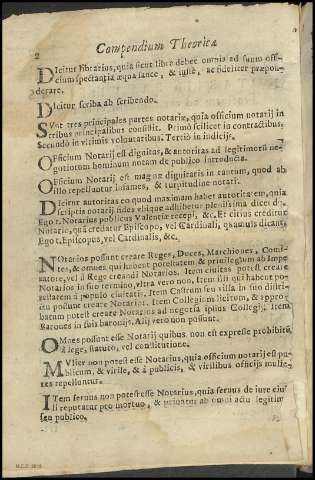 2 Compendium Theorica
DIcitur librarius, quia sicut libra debet omnia ad suum offi-
cium spectantia æqua lance, & iustè, ac fideliter præpon-
derare.
DIcitur scriba ab scribendo.
SVnt tres principales partes notariæ, quia officium notarij in
tribus principalibus consistit. Primò scilicet in contractibus,
Secundò in vltimis voluntatibus. Tertiò in indicijs.
OFficium Notarij est dignitas, & autoritas ad legitimorũ ne-
gotiorum hominum notam de publico introducta.
OFficium Notarij est magnæ dignitatis in tantum, quod ab
illo repelluntur infames, & turpitudine notati.
DIcitur autoritas eo quod maximam habet autoritatem, quia
scriptis notarij fides vbique adhibetur plenissima dicet dõ.
Ego t. Notarius publicus Valentiæ recepi, &c. Et citius creditur
Notario, quã credatur Episcopo, vel Cardinali, quamuis dicant,
Ego t. Episcopus, vel Cardinalis, &c.
NOtarios possunt creare Reges, Duces, Marchiones, Comi-
tes, & omnes qui habent potestatem & priuilegium ab Impe-
ratore, vel à Rege creandi Notarios. Item ciuitas potest creare
Notarios in suo termino, vltra verò non, Item illi qui habent po-
testatem à populo ciuitatis. Item Castrum seu villa in suo distri-
ctu possunt creare Notarios. Item Collegium licitum, & appro-
batum potest creare Notarios ad negotia ipsius Collegij. Item
Barones in suis baronijs. Alij verò non possunt.
OMnes possunt esse Notarij quibus non est expresse prohibitũ
à lege, statuto, vel constitutione.
MVlier non potest esse Notarius, quia officium notarij est pu-
blicum, & virile, & à publicis, & virilibus officijs mulie-
res repelluntur.
ITem seruus non potest esse Notarius, quia seruus de iure ciui-
li reputatur pro mortuo, & priuatur ab omni actu legitimo
seu publico.